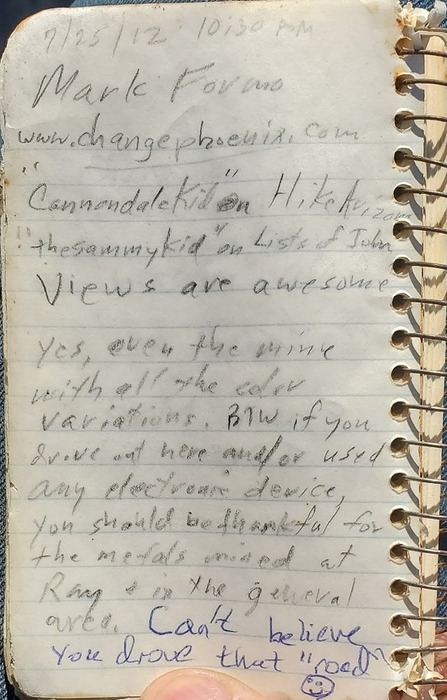 7/25/12 10:30 AM
Mark Formo
www.changephoenix.com
"CannondaleKid" on HikeArizona
"thesammykid" on Lists of John
Views are awesome
Yes, even the mine
with all the color
variations. BTW if you
drove out here and/or used
any electronic device,
you should be thankful for
the metals mined at
Ray & in the general
area. Can't believe
you drove that "road"